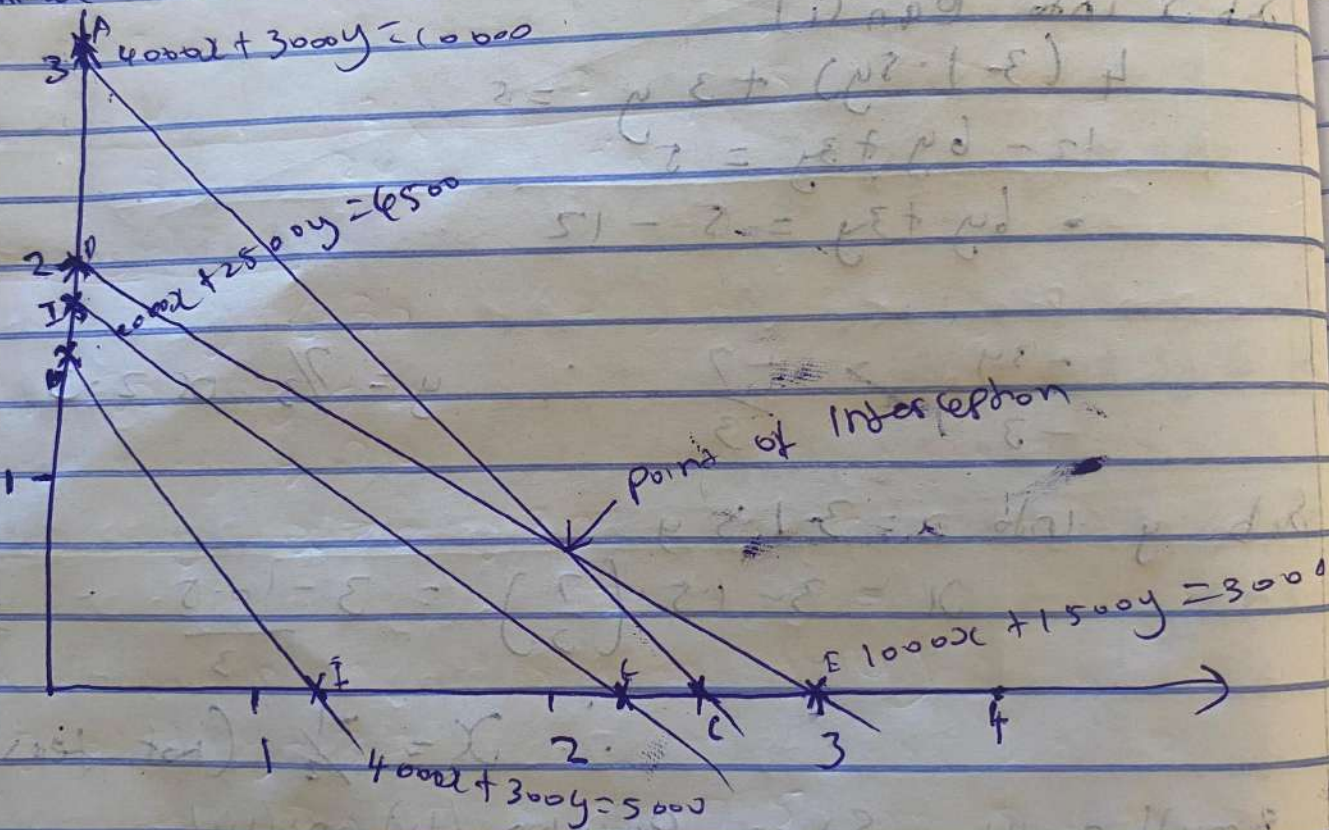 A
3
4000x + 3000y = 10000
2
D
2000x + 2500y = 6500
I
B
1
Point of Interception
E
1000x + 1500y = 3000
I
C
1
2
3
4
4000x + 300y = 5000